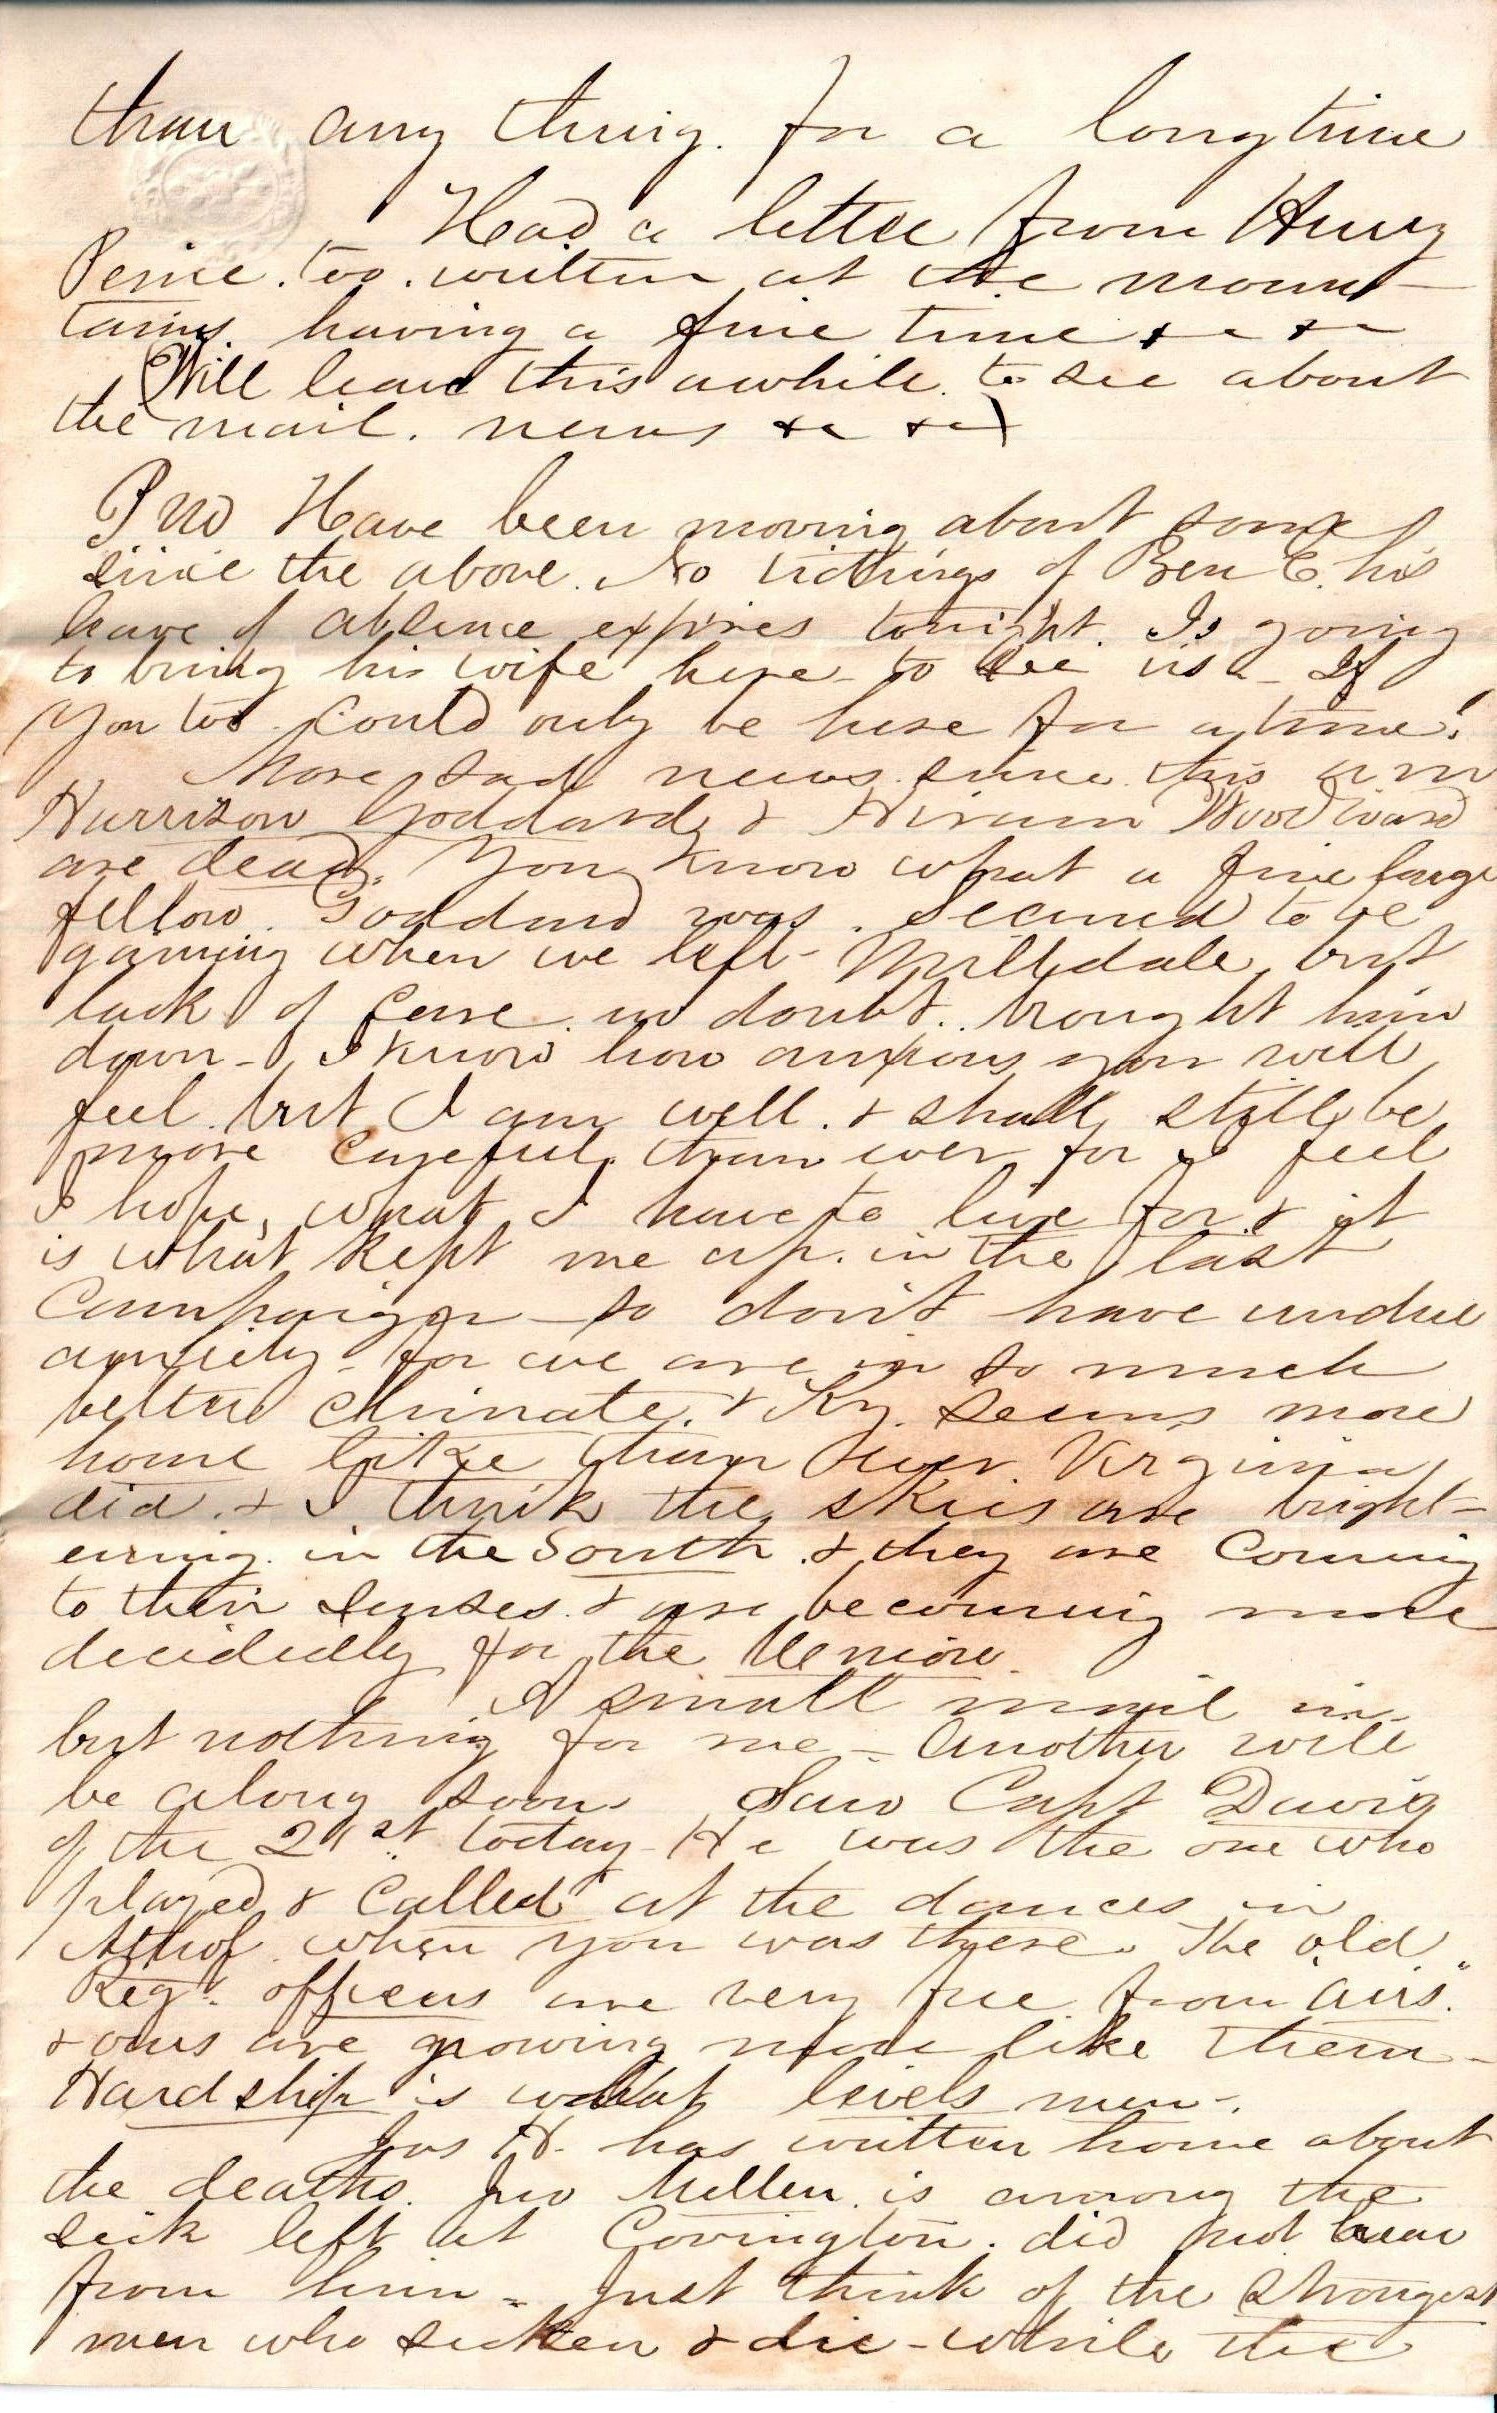 than any thing. for a long time
Had a letter from Henry
Peirce. too. written at the moun-
tains. having a fine time &c &c
Will leave this awhile. to see about
the mail. news &c &c
P M Have been moving about some
since the above. No tidings of Ben E. his
leave of absence expires tonight. Is going
to bring his wife here - to see us - If
you too. could only be here for a time!
More sad news. since this a m
Harrison Goddard, & Hiram Woodward
are dead. You know what a fine large
fellow. Goddard was. Seemed to be
gaining when we left - Milldale, but
lack of care. no doubt. brought him
down - I know how anxious you will
feel. but I am well. & shall still be
more careful. than ever for I feel
I hope, what I have to live for. & it
is what kept me up. in the last
Campaign - so don't have undue
anxiety - for we are in so much
better climate. & Ky. seems more
home like than ever Virginia,
did. & I think the skies are bright-
ening. in the South. & they are coming
to their senses. & are becoming more
decidedly for the Union.
A small mail in -
but nothing for me - Another will
be along soon. Saw Capt Davis
of the 21st. today - He was the one who
played & "called" at the dances in
Athol. when you was there. The old
Regt. officers are very free from "airs".
& ours are growing more like them -
Hardship is what levels men -.
Jas H. has written home about
the deaths. Jno Mellen. is among the
sick left at Covington. did not hear
from him - Just think of the strongest
men who sicken & die - while the